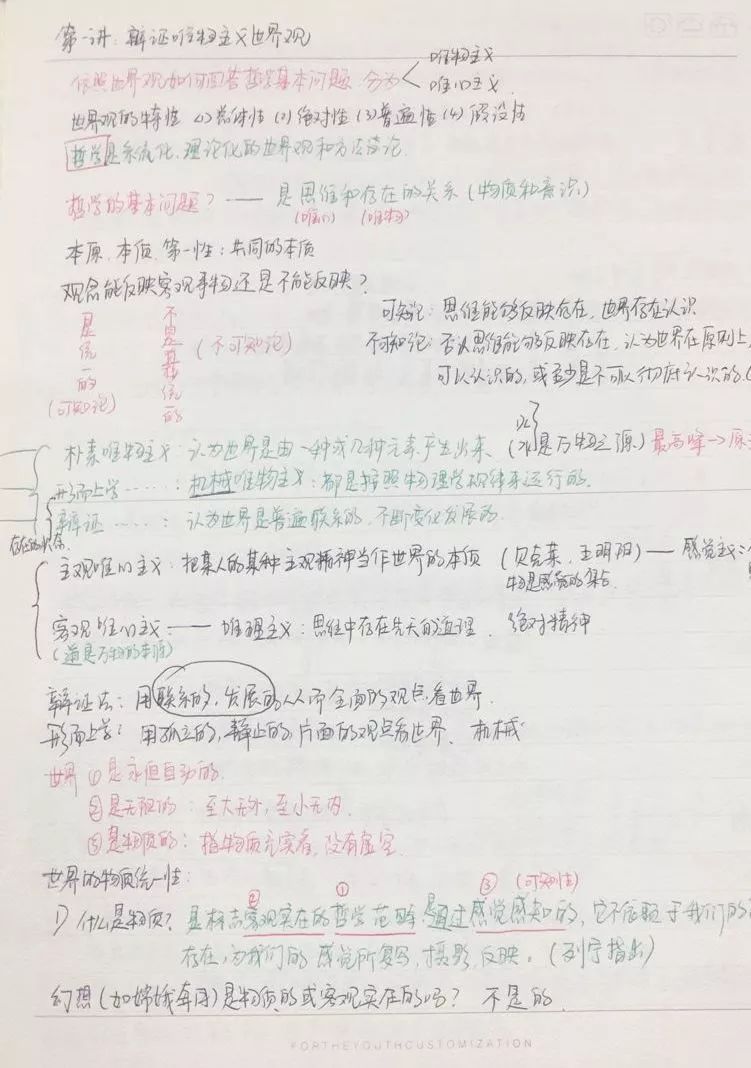 第一讲：辩证唯物主义世界观
依照世界观如何回答哲学基本问题 分为 唯物主义
唯心主义
世界观的特性 (1)总体性 (2)绝对性 (3)普遍性 (4)假设性
哲学是系统化、理论化的世界观和方法论
哲学的基本问题？—— 是思维和存在的关系（物质和意识）
(唯心) (唯物)
本原、本质、第一性：共同的本质
观念能反映客观事物还是不能反映？
是统一的（可知论）
不是统一的（不可知论）
可知论：思维能够反映存在，世界存在认识
不可知论：否认思维能够反映存在，认为世界在原则上
可以认识的，或至少是不可以彻底认识的
朴素唯物主义：认为世界是由一种或几种元素产生出来 （水是万物之源）最高峰→
形而上学……：机械唯物主义：都是按照物理学规律来运行的.
辩证……：认为世界是普遍联系的，不断变化发展的
存在的状态
主观唯心主义：把某人的某种主观精神当作世界的本质 （贝克莱、王明阳）—— 感觉主义
物是感觉的集合
客观唯心主义 —— 唯理主义：思维中存在先天的道理 绝对精神
（道是万物的本源）
辩证法：用联系的，发展的从而全面的观点看世界.
形而上学：用孤立的，静止的，片面的观点看世界、机械
世界 ①是永恒自动的.
②是无限的：至大无外，至小无内.
③是物质的：指物质充实着，没有虚空.
世界的物质统一性：
② ① ③ （可知性）
1) 什么是物质？是标志客观实在的哲学范畴 是通过感觉感知的，它不依赖于我们的
存在，为我们的感觉所复写、摄影、反映。（列宁指出）
幻想（如嫦娥奔月）是物质的或客观实在的吗？ 不是的.
FORTHEYOUTHCUSTOMIZATION